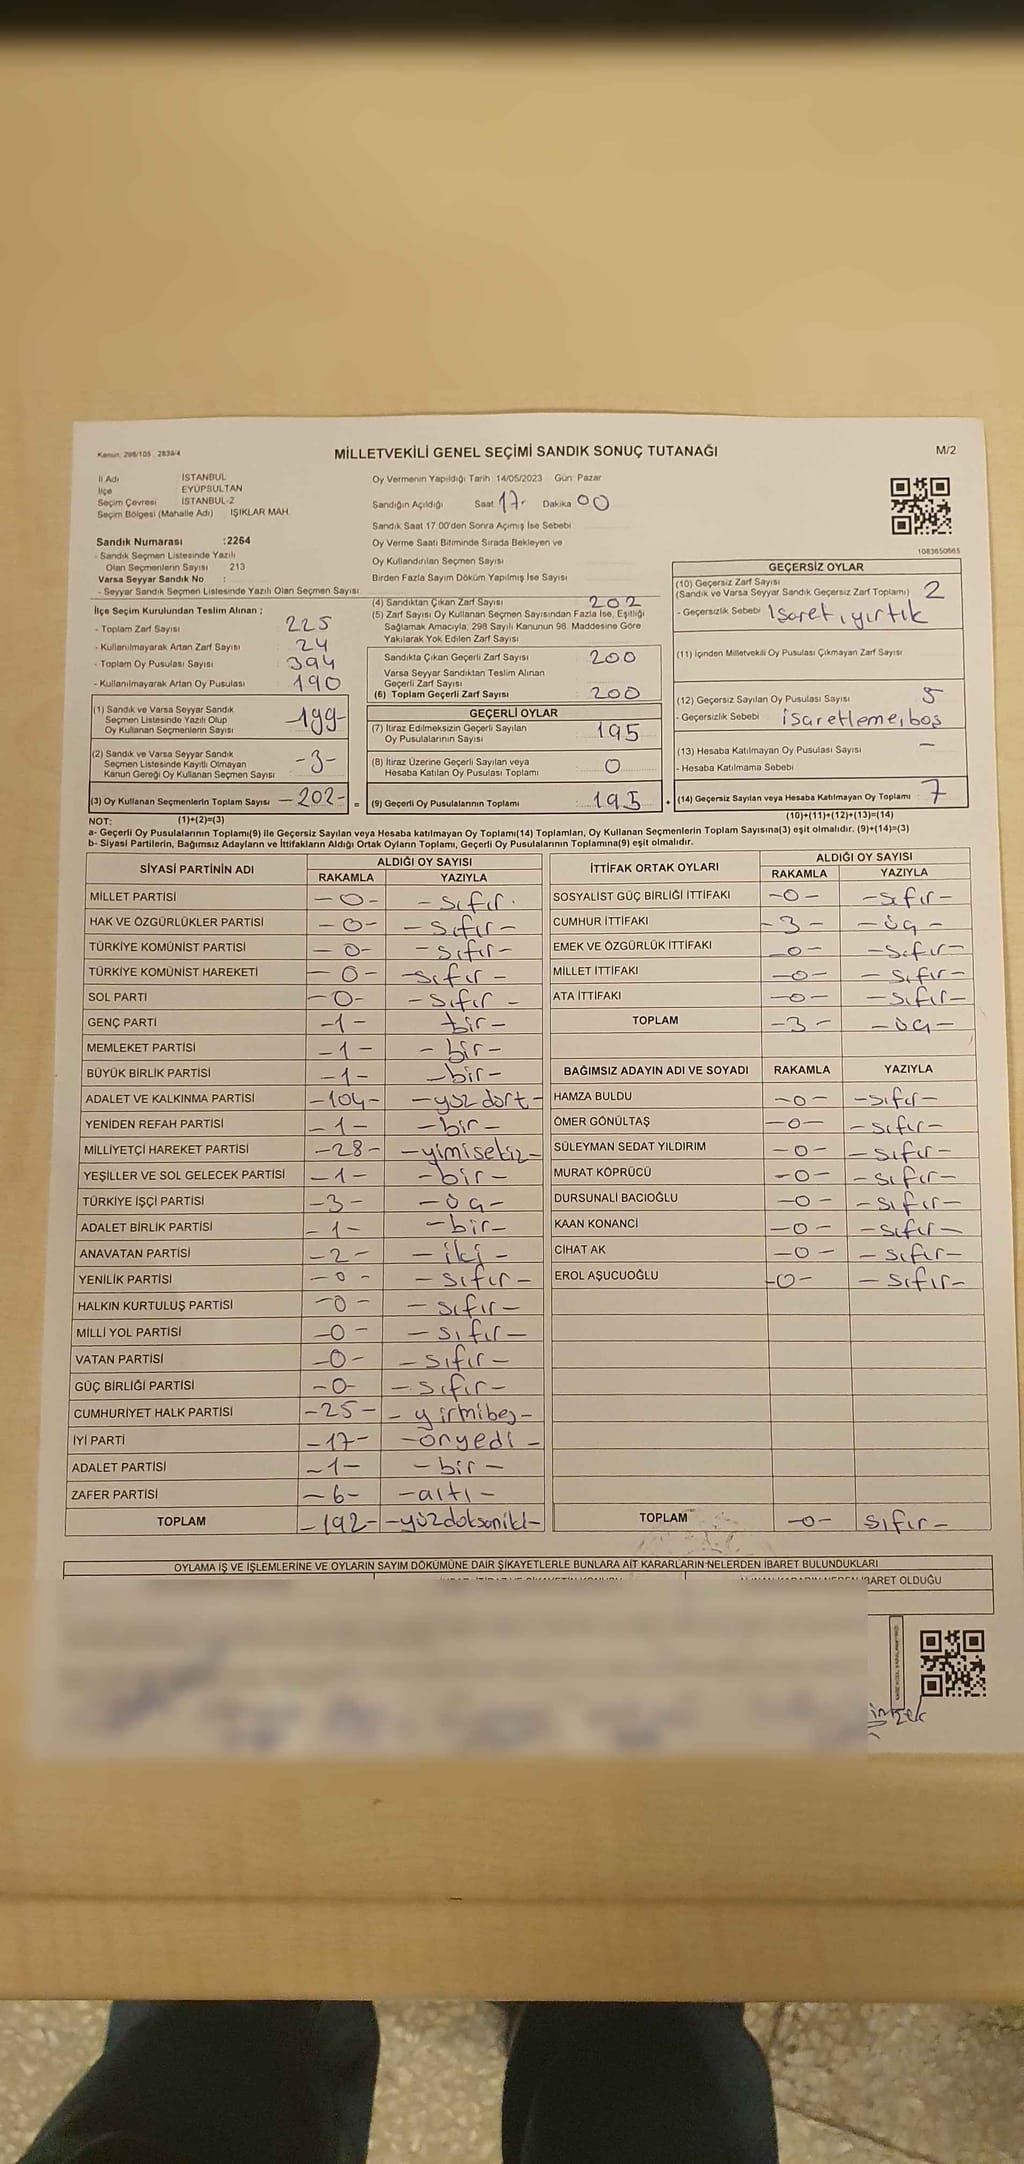 Kanun: 298/105 , 2839/4
MİLLETVEKİLİ GENEL SEÇİMİ SANDIK SONUÇ TUTANAĞI
M/2
İl Adı İSTANBUL
İlçe EYÜPSULTAN
Seçim Çevresi İSTANBUL-2
Seçim Bölgesi (Mahalle Adı) IŞIKLAR MAH.
Sandık Numarası :2264
- Sandık Seçmen Listesinde Yazılı
Olan Seçmenlerin Sayısı 213
Varsa Seyyar Sandık No :
- Seyyar Sandık Seçmen Listesinde Yazılı Olan Seçmen Sayısı
Oy Vermenin Yapıldığı Tarih :14/05/2023 Gün: Pazar
Sandığın Açıldığı Saat 17- Dakika 00
Sandık Saat 17:00'den Sonra Açımış İse Sebebi
Oy Verme Saati Bitiminde Sırada Bekleyen ve
Oy Kullandırılan Seçmen Sayısı
Birden Fazla Sayım Döküm Yapılmış İse Sayısı
1083650665
İlçe Seçim Kurulundan Teslim Alınan ;
- Toplam Zarf Sayısı 225
- Kullanılmayarak Artan Zarf Sayısı 24
- Toplam Oy Pusulası Sayısı 394
- Kullanılmayarak Artan Oy Pusulası 190
(1) Sandık ve Varsa Seyyar Sandık
Seçmen Listesinde Yazılı Olup
Oy Kullanan Seçmenlerin Sayısı -199-
(2) Sandık ve Varsa Seyyar Sandık
Seçmen Listesinde Kayıtlı Olmayan
Kanun Gereği Oy Kullanan Seçmen Sayısı -3-
(3) Oy Kullanan Seçmenlerin Toplam Sayısı -202- =
(4) Sandıktan Çıkan Zarf Sayısı 202
(5) Zarf Sayısı Oy Kullanan Seçmen Sayısından Fazla İse, Eşitliği
Sağlamak Amacıyla, 298 Sayılı Kanunun 98. Maddesine Göre
Yakılarak Yok Edilen Zarf Sayısı
Sandıkta Çıkan Geçerli Zarf Sayısı 200
Varsa Seyyar Sandıktan Teslim Alınan
Geçerli Zarf Sayısı
(6) Toplam Geçerli Zarf Sayısı 200
GEÇERLİ OYLAR
(7) İtiraz Edilmeksizin Geçerli Sayılan
Oy Pusulalarının Sayısı 195
(8) İtiraz Üzerine Geçerli Sayılan veya
Hesaba Katılan Oy Pusulası Toplamı 0
(9) Geçerli Oy Pusulalarının Toplamı : 195 +
GEÇERSİZ OYLAR
(10) Geçersiz Zarf Sayısı
(Sandık ve Varsa Seyyar Sandık Geçersiz Zarf Toplamı) 2
- Geçersizlik Sebebi İsaret, yırtık
(11) İçinden Milletvekili Oy Pusulası Çıkmayan Zarf Sayısı
(12) Geçersiz Sayılan Oy Pusulası Sayısı 5
- Geçersizlik Sebebi isaretleme, boş
(13) Hesaba Katılmayan Oy Pusulası Sayısı -
- Hesaba Katılmama Sebebi
(14) Geçersiz Sayılan veya Hesaba Katılmayan Oy Toplamı : 7
NOT: (1)+(2)=(3) (10)+(11)+(12)+(13)=(14)
a- Geçerli Oy Pusulalarının Toplamı(9) ile Geçersiz Sayılan veya Hesaba katılmayan Oy Toplamı(14) Toplamları, Oy Kullanan Seçmenlerin Toplam Sayısına(3) eşit olmalıdır. (9)+(14)=(3)
b- Siyasi Partilerin, Bağımsız Adayların ve İttifakların Aldığı Oyların Toplamı, Geçerli Oy Pusulalarının Toplamına(9) eşit olmalıdır.
SİYASİ PARTİNİN ADI ALDIĞI OY SAYISI
RAKAMLA YAZIYLA
MİLLET PARTİSİ -0- -sıfır-
HAK VE ÖZGÜRLÜKLER PARTİSİ -0- -sıfır-
TÜRKİYE KOMÜNİST PARTİSİ -0- -sıfır-
TÜRKİYE KOMÜNİST HAREKETİ -0- -sıfır-
SOL PARTİ -0- -sıfır-
GENÇ PARTİ -1- bir-
MEMLEKET PARTİSİ -1- -bir-
BÜYÜK BİRLİK PARTİSİ -1- -bir-
ADALET VE KALKINMA PARTİSİ -104- -yüzdört-
YENİDEN REFAH PARTİSİ -1- -bir-
MİLLİYETÇİ HAREKET PARTİSİ -28- -yimisekiz-
YEŞİLLER VE SOL GELECEK PARTİSİ -1- -bir-
TÜRKİYE İŞÇİ PARTİSİ -3- -üç-
ADALET BİRLİK PARTİSİ -1- -bir-
ANAVATAN PARTİSİ -2- -iki-
YENİLİK PARTİSİ -0- -sıfır-
HALKIN KURTULUŞ PARTİSİ -0- -sıfır-
MİLLİ YOL PARTİSİ -0- -sıfır-
VATAN PARTİSİ -0- -sıfır-
GÜÇ BİRLİĞİ PARTİSİ -0- -sıfır-
CUMHURİYET HALK PARTİSİ -25- -yirmibeş-
İYİ PARTİ -17- -onyedi-
ADALET PARTİSİ -1- -bir-
ZAFER PARTİSİ -6- -altı-
TOPLAM -192- -yüzdoksaniki-
İTTİFAK ORTAK OYLARI ALDIĞI OY SAYISI
RAKAMLA YAZIYLA
SOSYALİST GÜÇ BİRLİĞİ İTTİFAKI -0- -sıfır-
CUMHUR İTTİFAKI -3- -üç-
EMEK VE ÖZGÜRLÜK İTTİFAKI -0- -sıfır-
MİLLET İTTİFAKI -0- -sıfır-
ATA İTTİFAKI -0- -sıfır-
TOPLAM -3- -üç-
BAĞIMSIZ ADAYIN ADI VE SOYADI RAKAMLA YAZIYLA
HAMZA BULDU -0- -sıfır-
ÖMER GÖNÜLTAŞ -0- -sıfır-
SÜLEYMAN SEDAT YILDIRIM -0- -sıfır-
MURAT KÖPRÜCÜ -0- -sıfır-
DURSUNALİ BACIOĞLU -0- -sıfır-
KAAN KONANCİ -0- -sıfır-
CİHAT AK -0- -sıfır-
EROL AŞUCUOĞLU -0- -sıfır-
TOPLAM -0- sıfır-
OYLAMA İŞ VE İŞLEMLERİNE VE OYLARIN SAYIM DÖKÜMÜNE DAİR ŞİKAYETLERLE BUNLARA AİT KARARLARIN NELERDEN İBARET BULUNDUKLARI
OLDUĞU